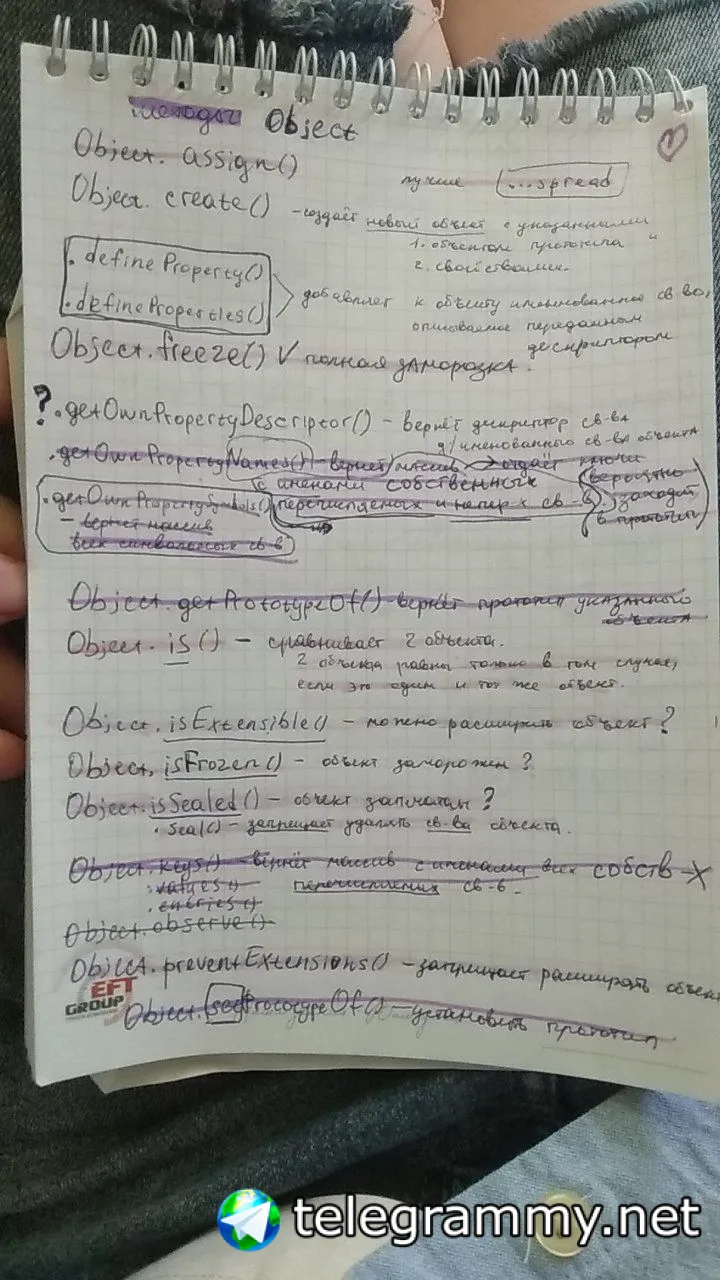 методы Object
Object. assign()
лучше ...spread
Object. create() - создаёт новый объект с указанными
1. объектом прототипа
2. свойствами.
. defineProperty()
. defineProperties()
добавляет к объекту именованное св-во,
описываемое переданным
дескриптором
Object.freeze() ✓ полная заморозка.
? .getOwnPropertyDescriptor() - вернёт дискриптор св-ва
д/именованного св-ва объекта
.getOwnPropertyNames() - вернёт массив → отдаёт ключи
с именами собственных
.getOwnPropertySymbols() перечисляемых и непер-х св-в
(вероятно заходит в прототип)
- вернёт массив
всех символьных св-в
Object.getPrototypeOf() - вернёт прототип указанного
объекта
Object. is() - сравнивает 2 объекта.
2 объекта равны только в том случае,
если это один и тот же объект.
Object. isExtensible() - можно расширить объект?
Object. isFrozen() - объект заморожен?
Object.isSealed() - объект запечатан?
. Seal() - запрещает удалять св-ва объекта.
Object.keys() - вернёт массив с именами всех собств-х
.values() перечисляемых св-в.
.entries()
Object.observe()
Object.preventExtensions() - запрещает расширять объект
EFT
GROUP
Object.setPrototypeOf() - установить прототип
telegrammy.net